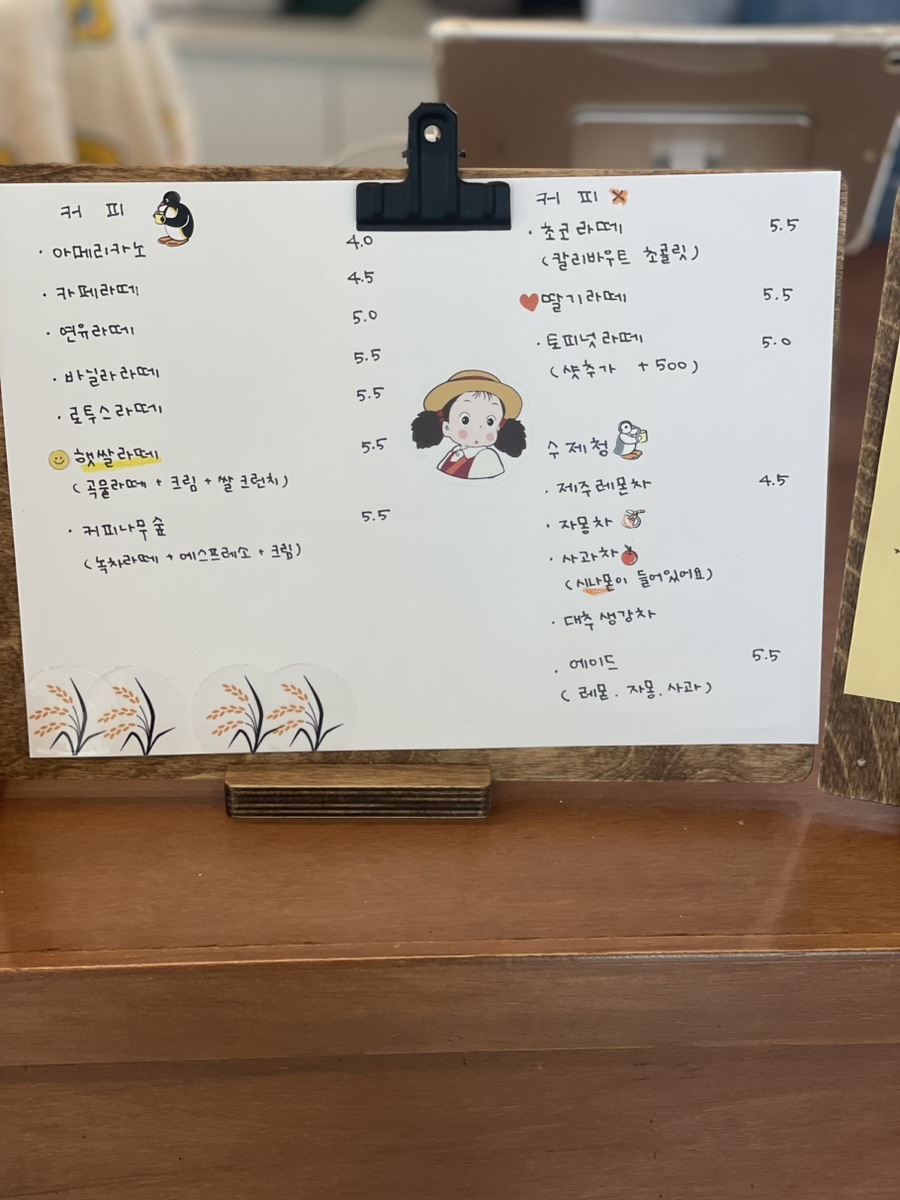 커 피
· 아메리카노 4.0
· 카페라떼 4.5
· 연유라떼 5.0
· 바닐라라떼 5.5
· 로투스라떼 5.5
햇쌀라떼 5.5
(곡물라떼 + 크림 + 쌀 크런치)
· 커피나무숲 5.5
(녹차라떼 + 에스프레소 + 크림)
커 피 X
· 초코라떼 5.5
(칼리바우트 초콜릿)
딸기라떼 5.5
· 토피넛라떼 5.0
(샷추가 +500)
수제청
· 제주레몬차 4.5
· 자몽차
· 사과차
(시나몬이 들어있어요)
· 대추생강차
· 에이드 5.5
(레몬. 자몽. 사과)